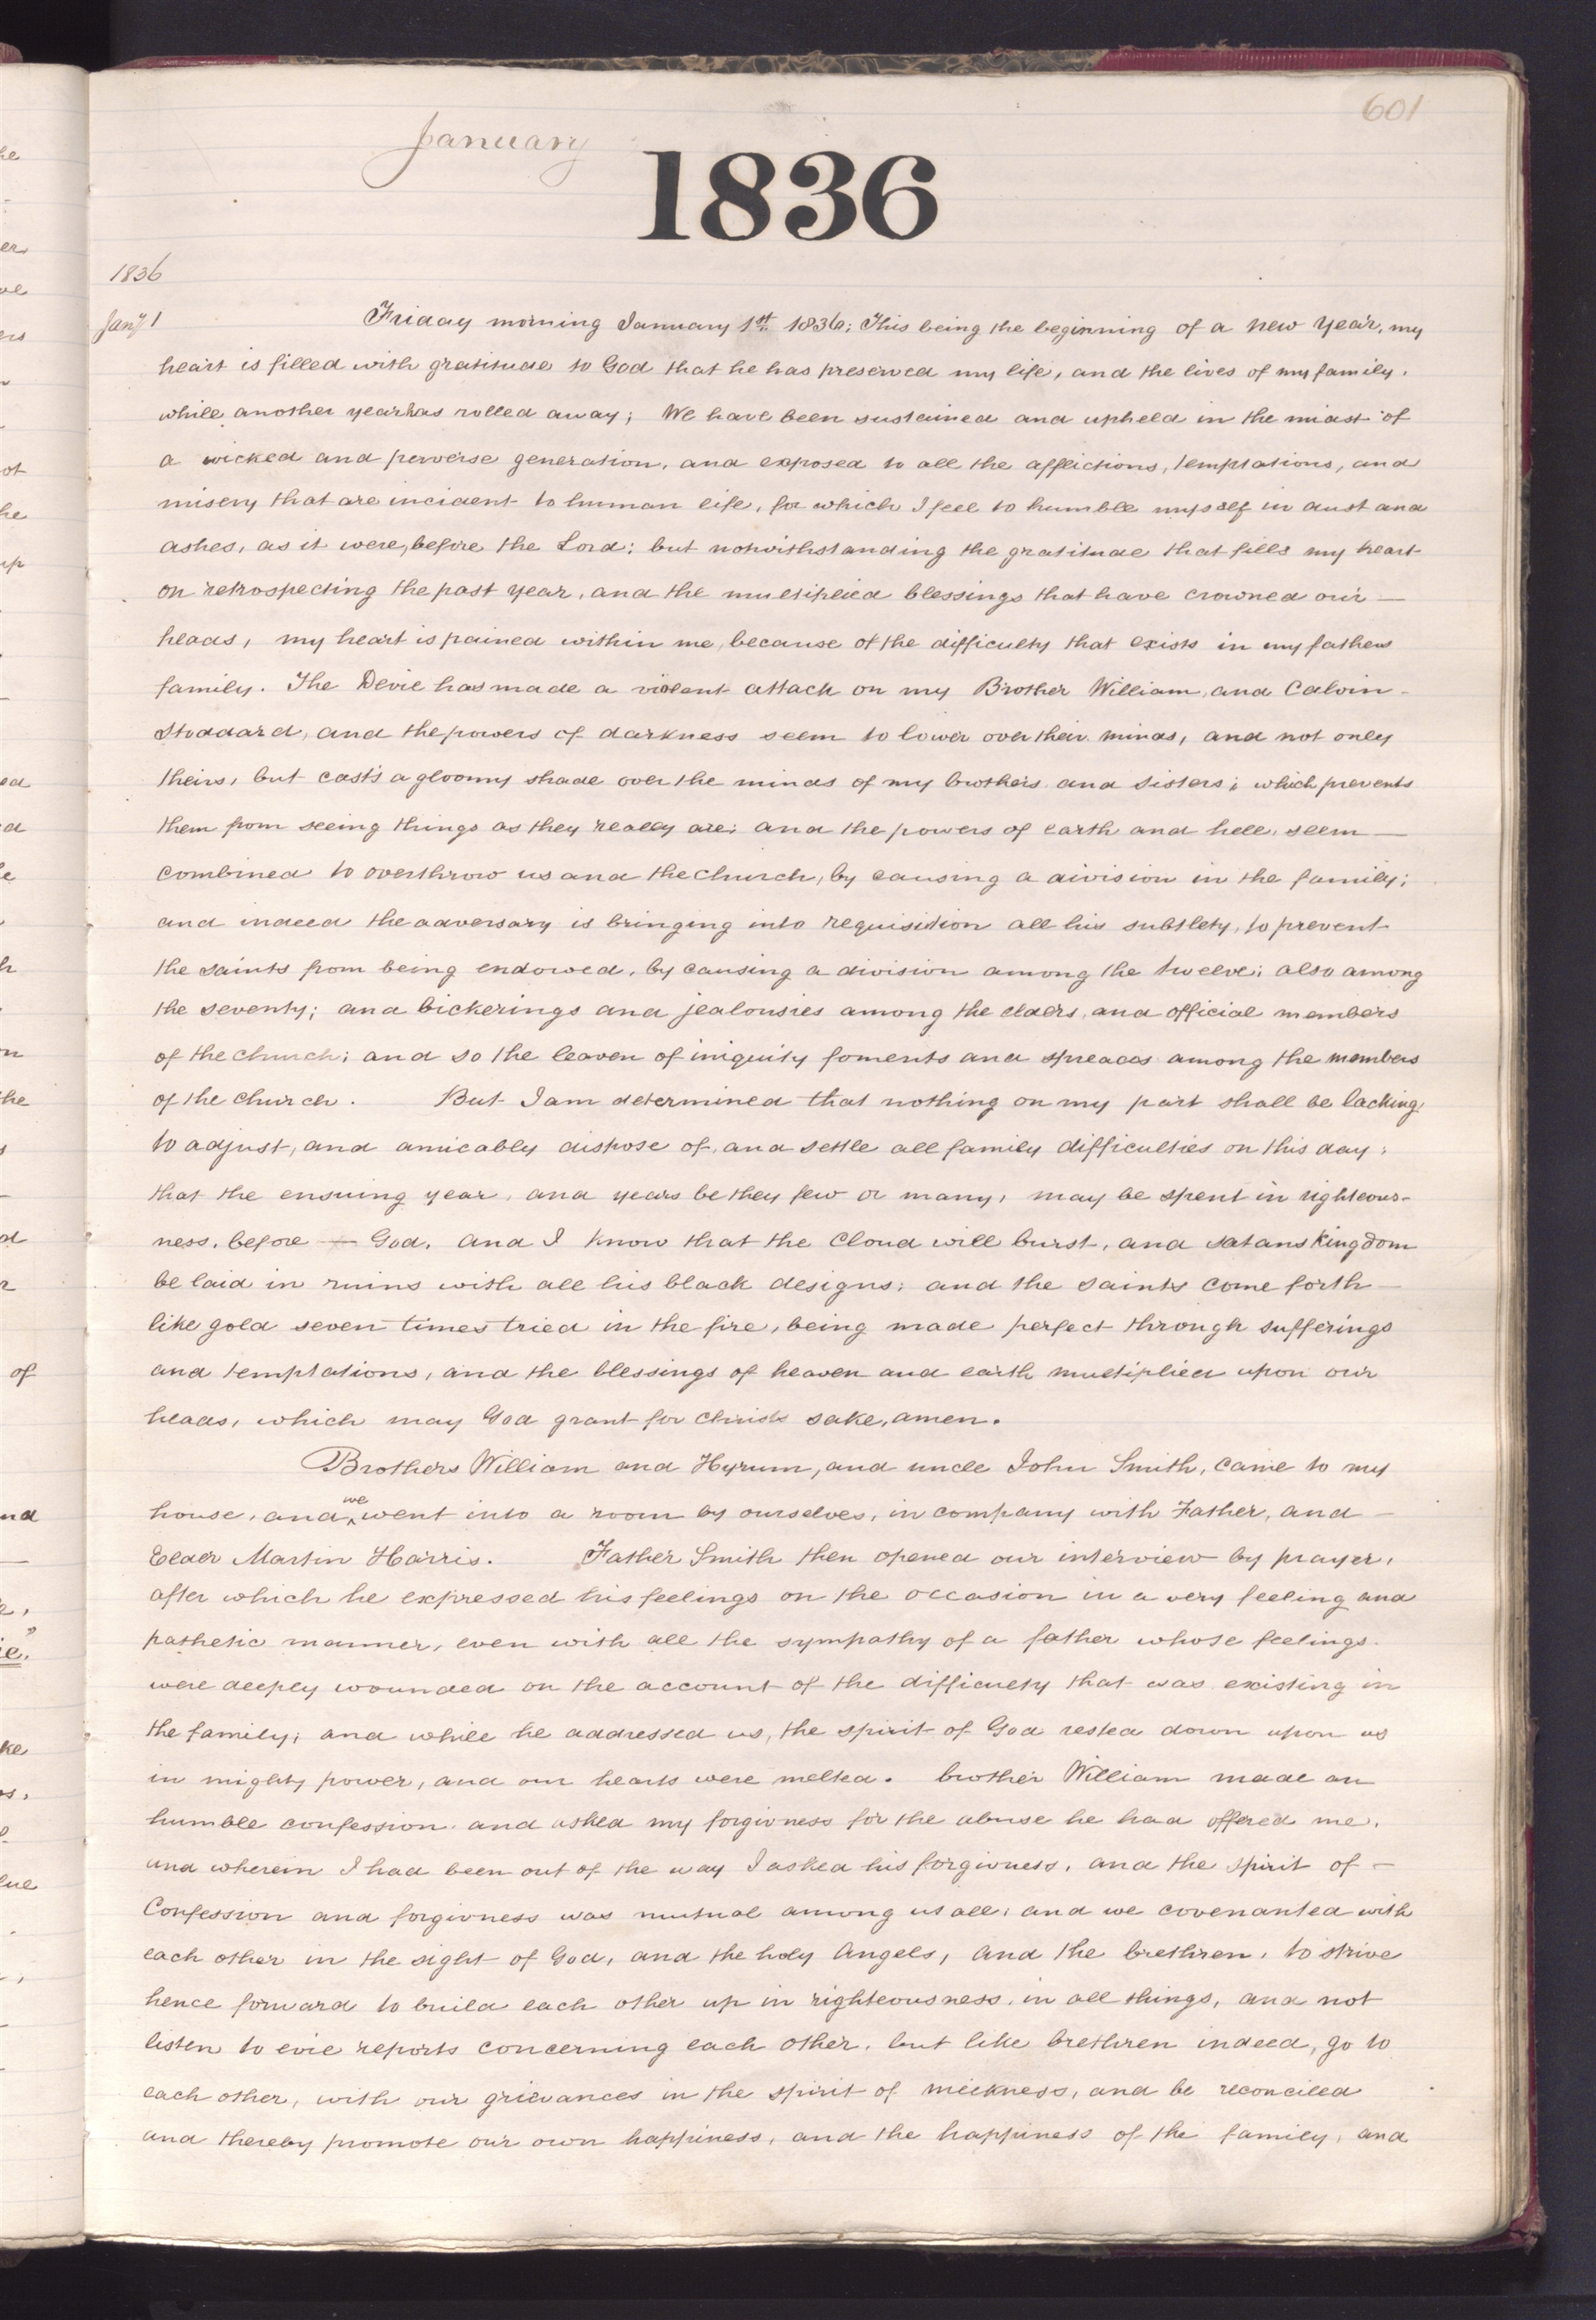 601
January
1836
1836
Jany 1
Friday morning January 1st 1836; This being the beginning of a new year, my
heart is filled with gratitude to God that he has preserved my life, and the lives of my family.
while another year has rolled away; We have been sustained and upheld in the midst of
a wicked and perverse generation, and exposed to all the afflictions, temptations, and
misery that are incident to human life, for which I feel to humble myself in dust and
ashes, as it were, before the Lord; but notwithstanding the gratitude that fills my heart
on retrospecting the past year, and the multiplied blessings that have crowned our —
heads, my heart is pained within me, because of the difficulty that exists in my fathers
family. The Devil has made a violent attack on my Brother William, and Calvin
Stoddard, and the powers of darkness seem to lower over their minds, and not only
theirs, but casts a gloomy shade over the minds of my brothers and sisters; which prevents
them from seeing things as they really are; and the powers of earth and hell, seem —
combined to overthrow us and the church, by causing a division in the family;
and indeed the adversary is bringing into requisition all his subtlety, to prevent
the saints from being endowed, by causing a division among the twelve; also among
the seventy; and bickerings and jealousies among the elders, and official members
of the church; and so the leaven of iniquity foments and spreads among the members
of the church. But I am determined that nothing on my part shall be lacking
to adjust, and amicably dispose of, and settle all family difficulties on this day;
that the ensuing year, and years be they few or many, may be spent in righteous-
ness, before — God, and I know that the cloud will burst, and satans kingdom
be laid in ruins with all his black designs; and the saints come forth —
like gold seven times tried in the fire, being made perfect through sufferings
and temptations, and the blessings of heaven and earth multiplied upon our
heads, which may God grant for Christs sake, amen.
Brothers William and Hyrum, and uncle John Smith, came to my
house, and we went into a room by ourselves, in company with Father, and —
Elder Martin Harris. Father Smith then opened our interview by prayer,
after which he expressed his feelings on the occasion in a very feeling and
pathetic manner, even with all the sympathy of a father whose feelings
were deeply wounded on the account of the difficulty that was existing in
the family; and while he addressed us, the spirit of God rested down upon us
in mighty power, and our hearts were melted. brother William made an
humble confession and asked my forgivness for the abuse he had offered me.
and wherein I had been out of the way I asked his forgivness, and the spirit of —
Confession and forgivness was mutual among us all, and we covenanted with
each other in the sight of God, and the holy Angels, and the brethren, to strive
hence forward to build each other up in righteousness, in all things, and not
listen to evil reports concerning each other, but like brethren indeed, go to
each other, with our grievances in the spirit of meekness, and be reconciled
and thereby promote our own happiness, and the happiness of the family, and